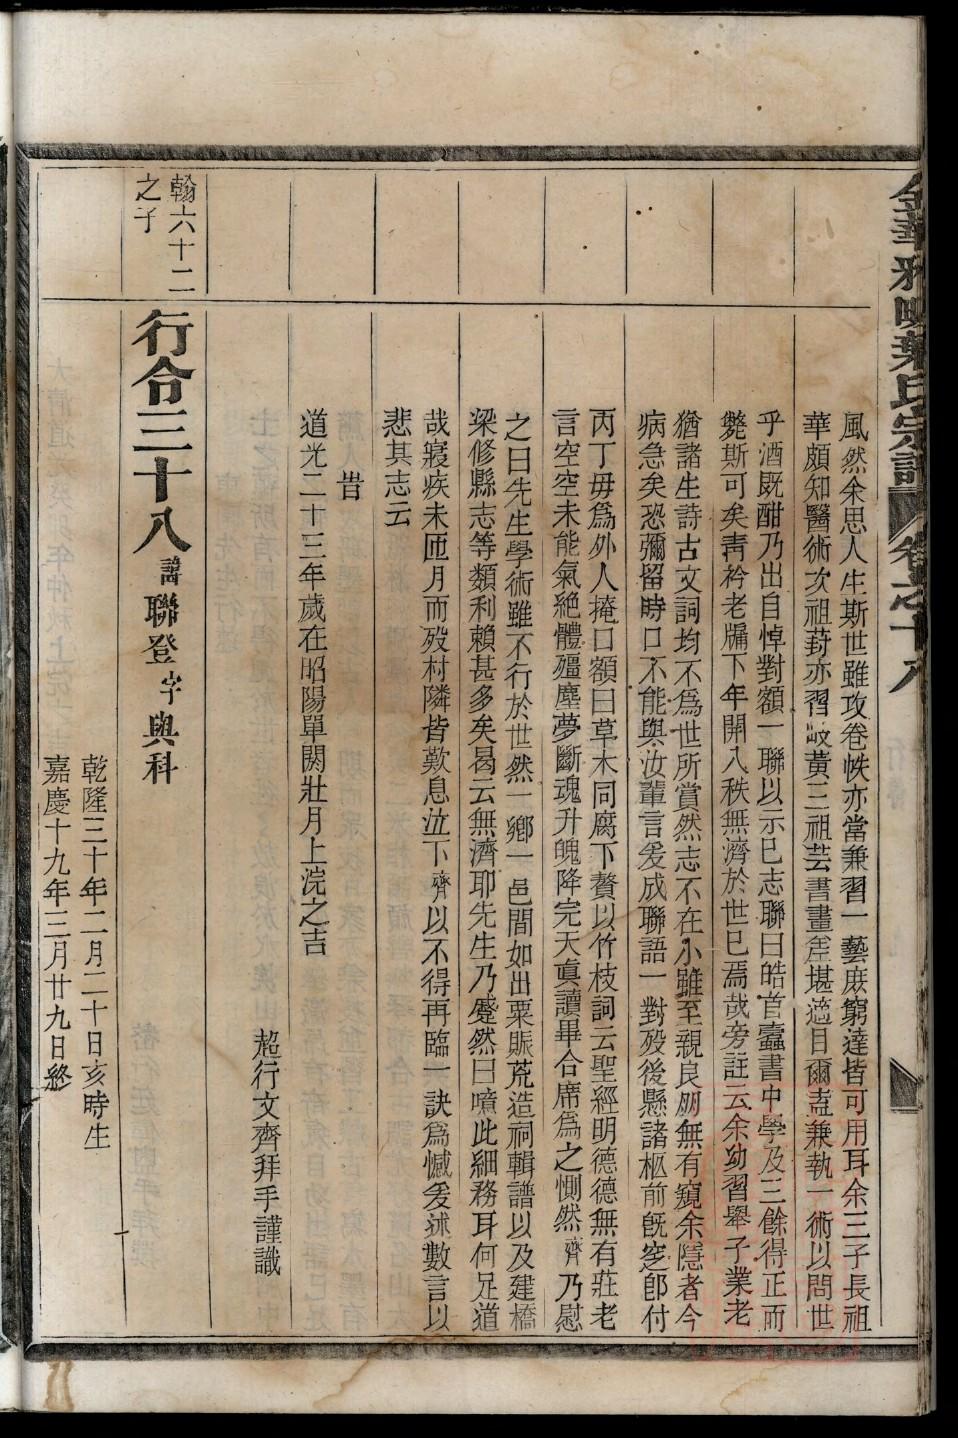 金華
葉氏宗譜
卷之十八
風然余思人生斯世雖攻卷帙亦當兼習一藝庶窮達皆可用耳余三子長祖
華頗知醫術次祖葑亦習岐黃三祖芸書畫差堪適目爾盍兼執一術以問世
乎酒既酣乃出自悼對額一聯以示已志聯曰皓首蠹書中學及三餘得正而
斃斯可矣青衿老牖下年開八秩無濟於世已焉哉旁註云余幼習舉子業老
猶諸生詩古文詞均不爲世所賞然志不在小雖至親良朋無有窺余隱者今
病急矣恐彌留時口不能與汝輩言爰成聯語一對歿後懸諸柩前既窆卽付
丙丁毋爲外人掩口額曰草木同腐下贅以竹枝詞云聖經明德德無有莊老
言空空未能氣絶體殭塵夢斷魂升魄降完天眞讀畢合席爲之惻然齊乃慰
之曰先生學術雖不行於世然一鄉一邑間如出粟賑荒造祠輯譜以及建橋
梁修縣志等類利賴甚多矣曷云無濟耶先生乃蹙然曰噴此細務耳何足道
哉寢疾未匝月而歿村隣皆歎息泣下齊以不得再臨一訣爲憾爰述數言以
悲其志云
旹
道光二十三年歲在昭陽單閼壯月上浣之吉
超行文齊拜手謹識
翰六十二
之子
行合三十八諱聯登字與科
乾隆三十年二月二十日亥時生
嘉慶十九年三月廿九日終